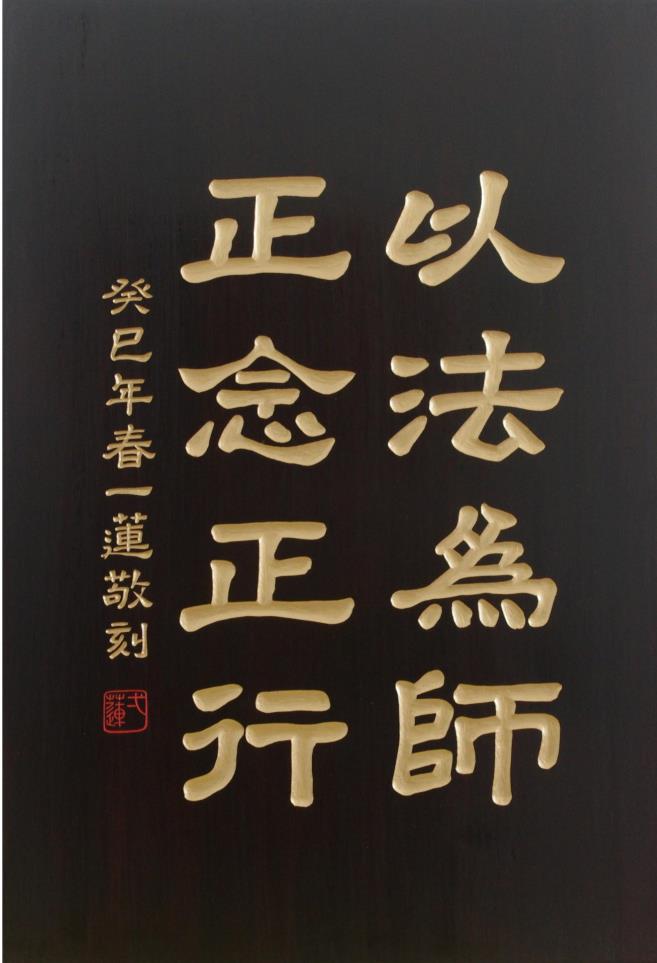 以法為師
正念正行
癸巳年春一蓮敬刻
弌蓮